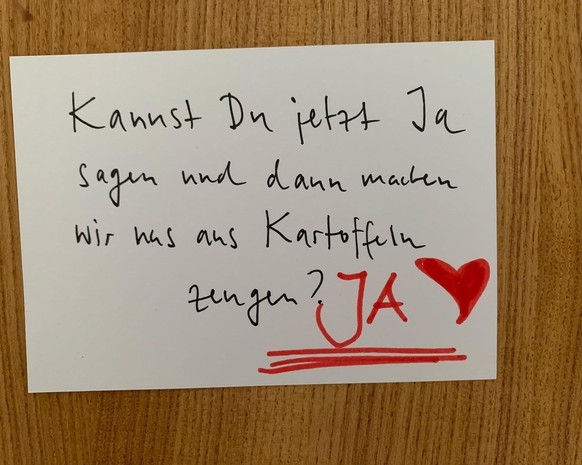 Kannst Du jetzt Ja
sagen und dann machen
wir uns aus Kartoffeln
zeugen? JA